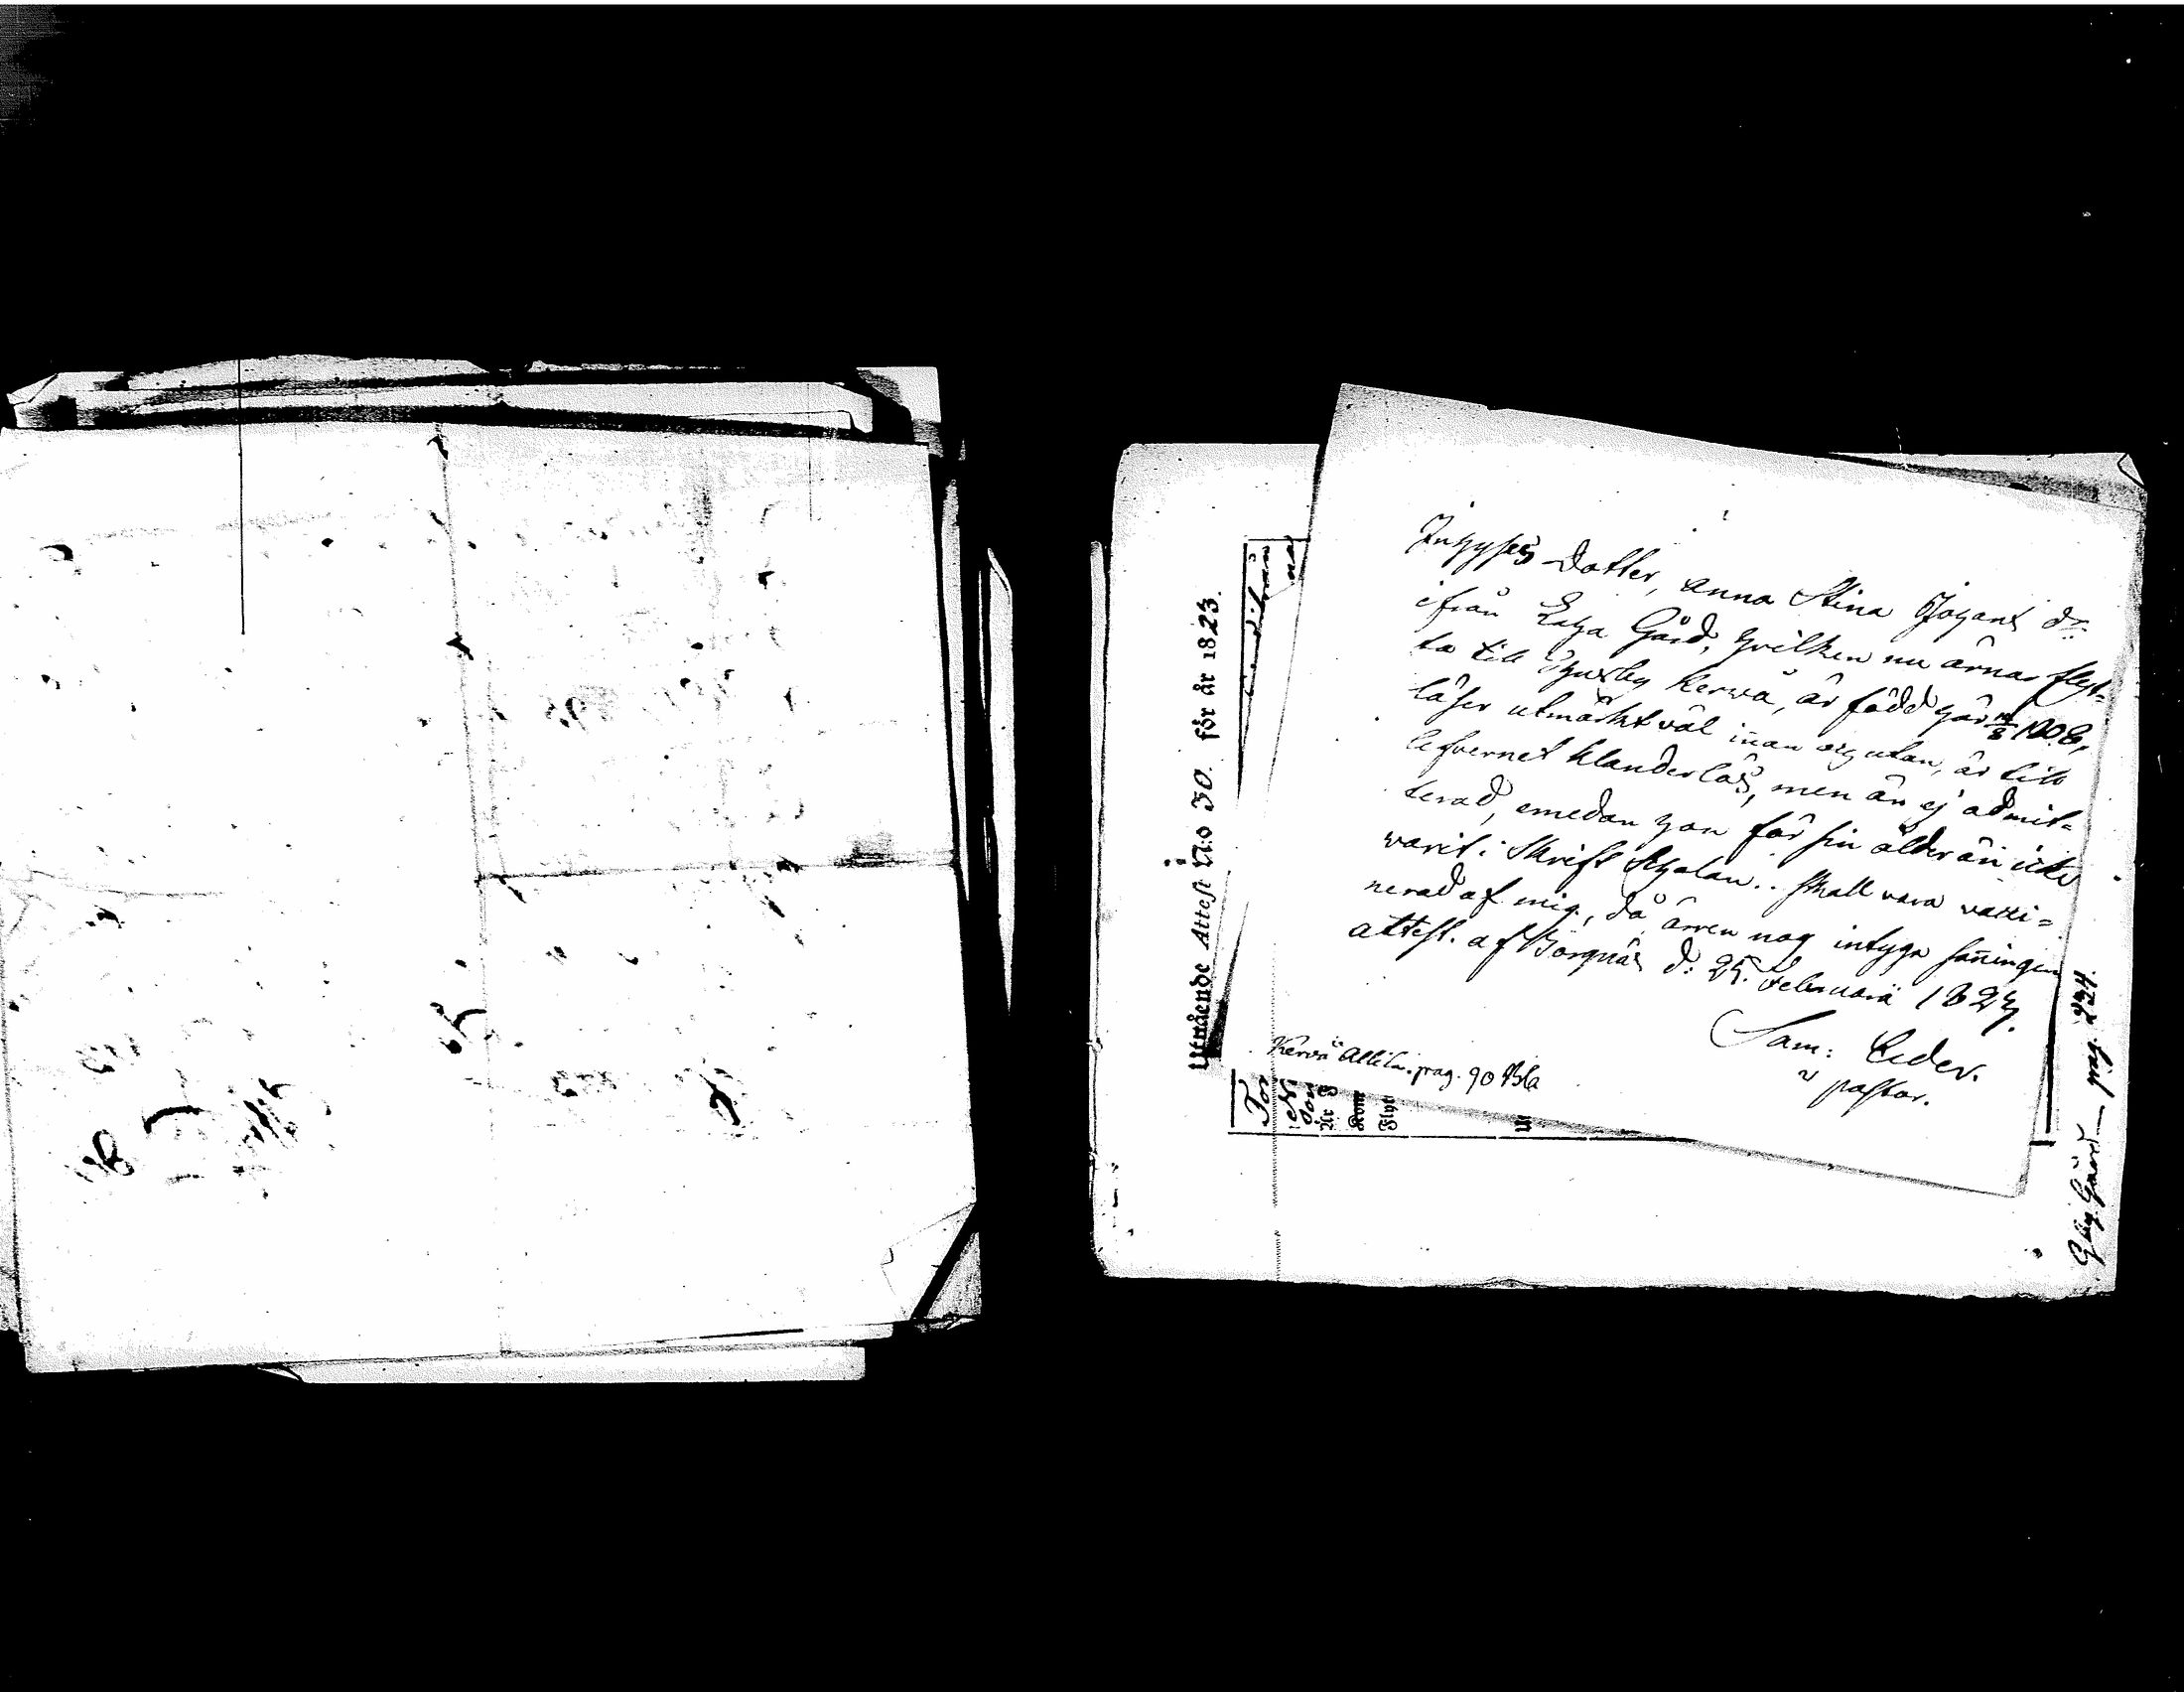 Inhyses Dotter, Anna Stina Johans dr.
ifrån Gård, hvilken nu ärnar flyt-
ta till Thusby Kervo, är född här 14/8 1808,
läser utmärkt väl innan och utan, är till
lefvernet klanderlös, men än ej admit=
terad, emedan hon för sin ålder än icke
varit i Skrift Scholan.. skall vara vacci=
nerad af mig, då ärren nog intyga sanningen
attest. af Borgnäs d: 25. Februarii 1823.
Sam: Ceder.
pastor.
Kervo Alli pag. 90
Utgående Attest N:o 30. för år 1823.
ifrån
År
Kom
Flyt
Ut
Gård — pag. 224.